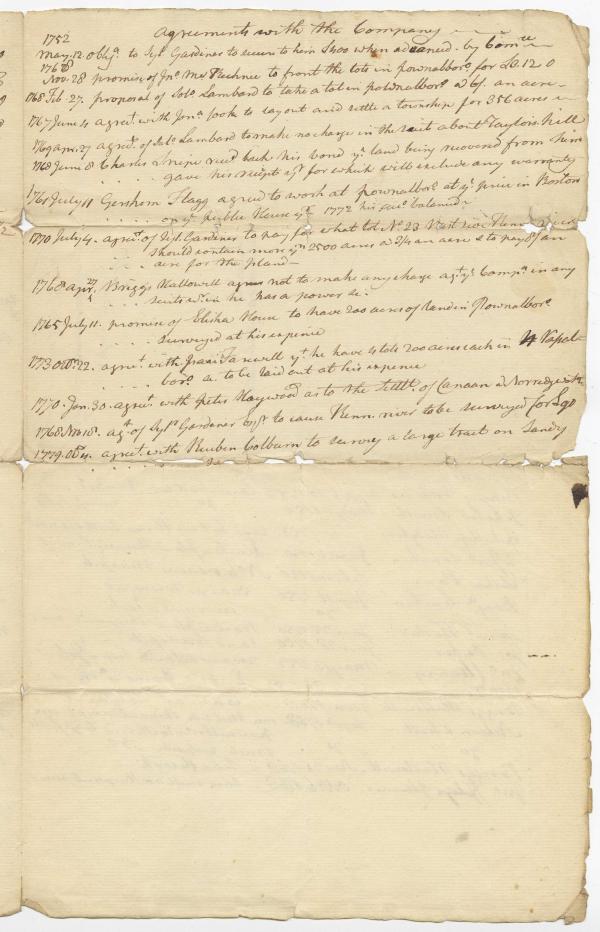 1752 Agreements with the Company
May. 12. Oblign. to Sylr. Gardiner to secure to him £400 when advanced by Comtee
1768 Nov. 28 promise of Jno. McKechnie to front the lots in pownalboro. for £3.12 0
1768 Feb. 27. proposal of Solo. Lambard to take a lot in pownalboro. @ 6/. an acre
1767 June 4 agreet. with Jona. to lay out and settle a township for 356 acres
1769 apr. 27 agreet. of Solo. Lambard to make no charge in the suit about Taylor's mill
1768 June 8 Charles Snipe recd. back his bond ye. land being recovered from him
gave his receipt for which will exclude any warranty
1761 July 11 Gershom Flagg agreed to work at pownalboro. at ye. price in Boston
on ye. publick House 1772 his acct. balanced
1770 July 4. agreet. of Sylr. Gardiner to pay for what lot No. 23 West side Kenn. river
should contain more yn. 2500 acres @ 2/ an acre & to pay 8/ an
acre for the Island
1768 apr. 27 Briggs Hallowell agrees not to make any charge agt. ye. Compa. in any
suits in he has a power &c.
1765 July 11. promise of Elisha House to have 200 acres of land in Pownalboro.
surveyed at his expence
1773 Octo. 22. agreet. with Isaac Farewell yt. he have 4 lots 200 acres each in Vassal
boro. &c. to be laid out at his expence
1770. Jan. 30. agreet. with Peter Haywood as to the settlt. of Canaan & Norridgewk.
1768. Nov. 18. agt. of Sylr. Gardiner to cause Kenn. river to be surveyed for
1779. Oct. 4. agreet. with Reuben Colburn to survey a large tract on Sandy